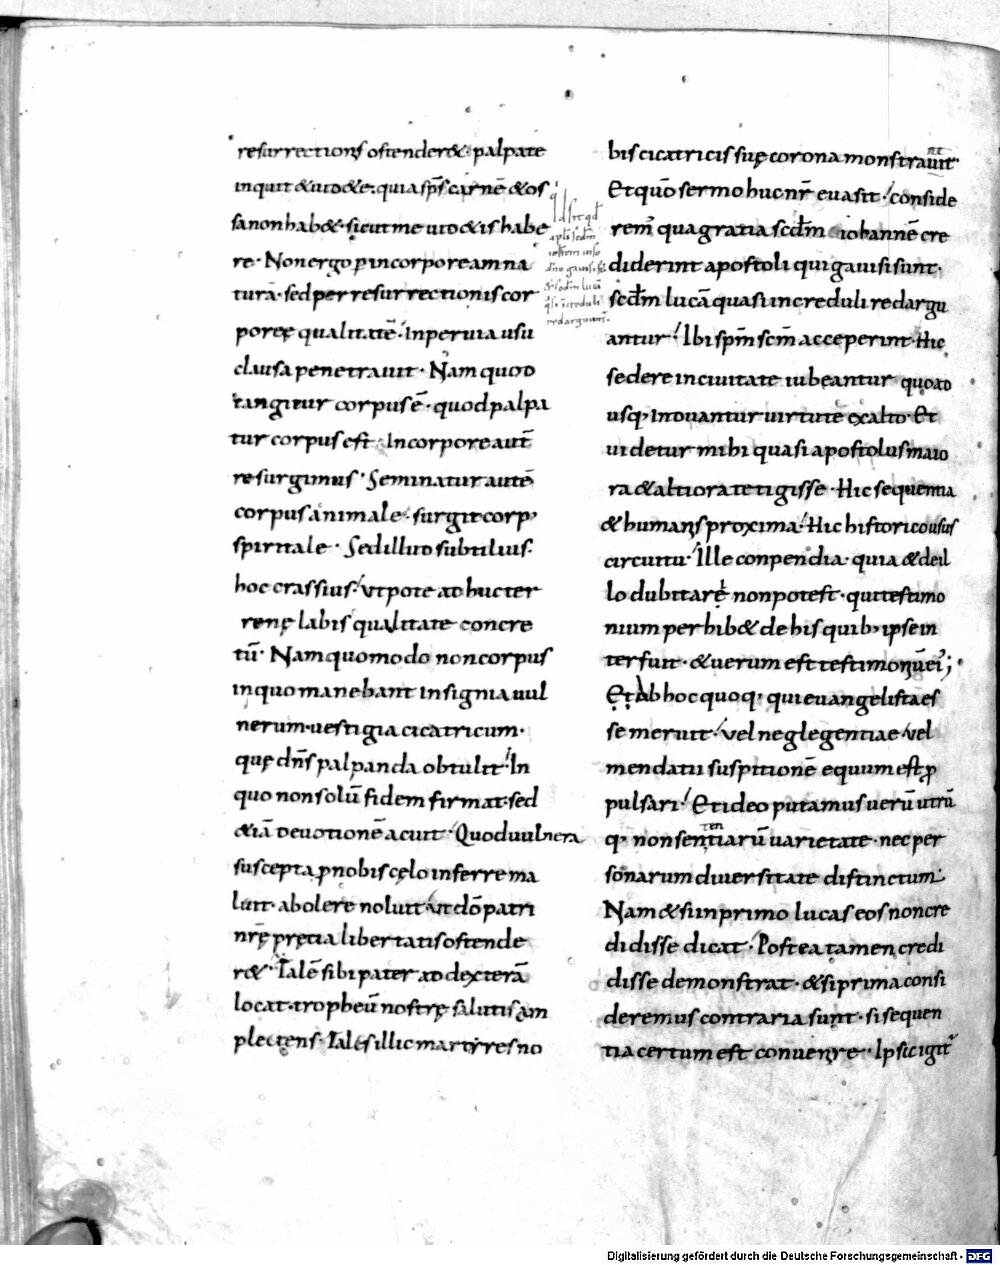 resurrectionis ostender&· palpate
inquit & uid&e· quia sp̄s carnē & os
sa non hab&· sicut me uid&is habe
re· Non ergo ꝑ incorpoream na
turā· sed per resurrectionis cor
poreę qualitatē· Inperuia usu
clausa penetrauit· Nam quod
tangitur corpus ē· quod palpa
tur corpus est· In corpore aut̄
resurgimus· Seminatur autē
corpus animale· surgit corp'
spiritale· Sed illud subtilius·
hoc crassius· Vtpote adhuc ter
renę labis qualitate concre
tū· Nam quomodo non corpus
in quo manebant insignia uul
nerum· uestigia cicatricum·
quę dn̄s palpanda obtulit· In
quo non solū fidem firmat· sed
& iā deuotionē acuit· Quod uulnera
suscepta ꝓ nobis cęlo inferre ma
luit· abolere noluit· ut dō patri
nrę̄ prętia libertatis ostende
r&· Talē sibi pater ad dexterā
locat· tropheū nostrę salutis am
plectens· Tales illic martyres no
bis cicatricis suę corona monstrauit·
Et quō sermo huc nr̄ euasit· conside
rem' qua gratia scd̄m iohannē cre
diderint apostoli qui gauisi sunt·
scd̄m lucā quasi increduli redargu
antur· Ibi sp̄m sc̄m acceperint· Hic
sedere in ciuitate iubeantur quoad
usq· induantur uirtutē ex alto· Et
uidetur mihi quasi apostolus maio
ra & altiora tetigisse· Hic sequentia
& humanis proxima· Hic historico usus
circuitu· Ille conpendia· quia & de il
lo dubitari non potest· qui testimo
nium perhib& de his quib; ipse in
terfuit· & uerum est testimonium ei';
Et ab hoc quoq· qui euangelista es
se meruit· Vel neglegentiae· Vel
mendatii suspitionē equum est ꝓ
pulsari· Et ideo putamus uerū utrū
q· non sententiarū uarietate· nec per
sonarum diuersitate distinctum·
Nam & si in primo lucas eos non cre
didisse dicat· Postea tamen credi
disse demonstrat· & si prima consi
deremus contraria sunt· si sequen
tia certum est conuenire· Ipsi igit̄
Id sit qd
apli scdm
iohem uiso
dno gauisi st
& scdm lucā
qsi increduli
redarguunt̄·
Digitalisierung gefördert durch die Deutsche Forschungsgemeinschaft - DFG